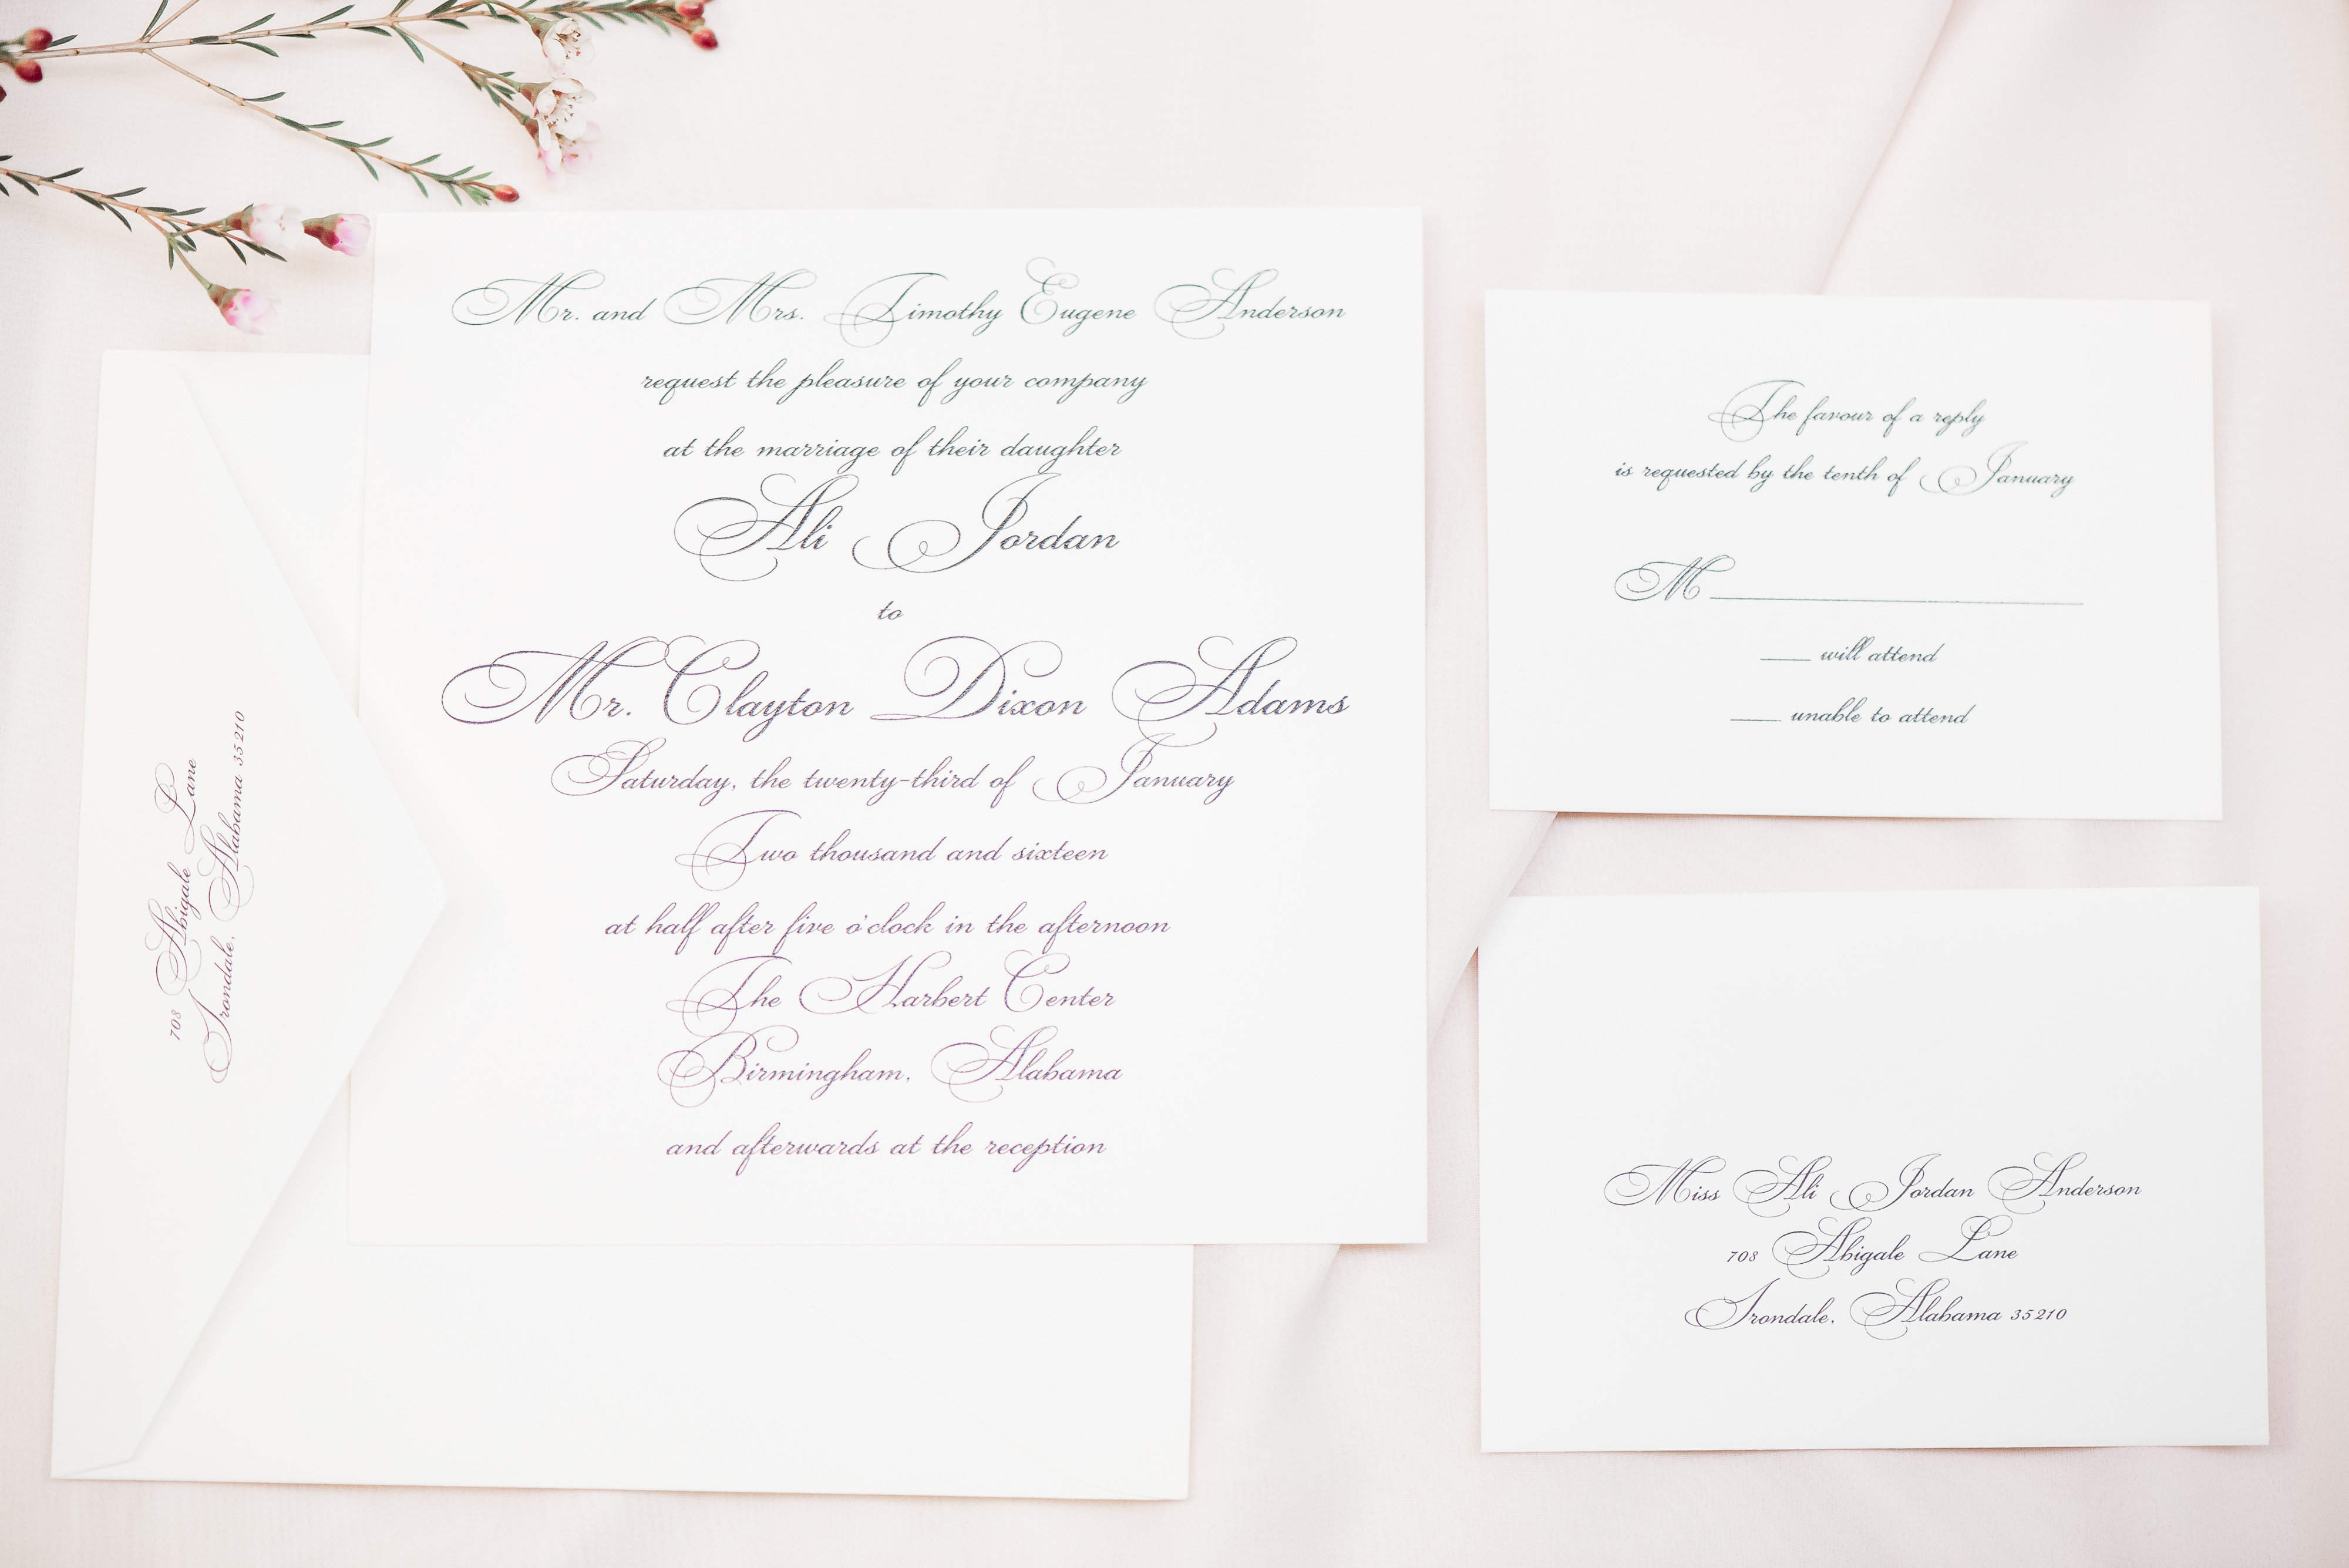 Mr. and Mrs. Timothy Eugene Anderson
request the pleasure of your company
at the marriage of their daughter
Ali Jordan
to
Mr. Clayton Dixon Adams
Saturday, the twenty-third of January
Two thousand and sixteen
at half after five o'clock in the afternoon
The Harbert Center
Birmingham, Alabama
and afterwards at the reception
708 Abigale Lane
Irondale, Alabama 35210
The favour of a reply
is requested by the tenth of January
M
will attend
unable to attend
Miss Ali Jordan Anderson
708 Abigale Lane
Irondale, Alabama 35210